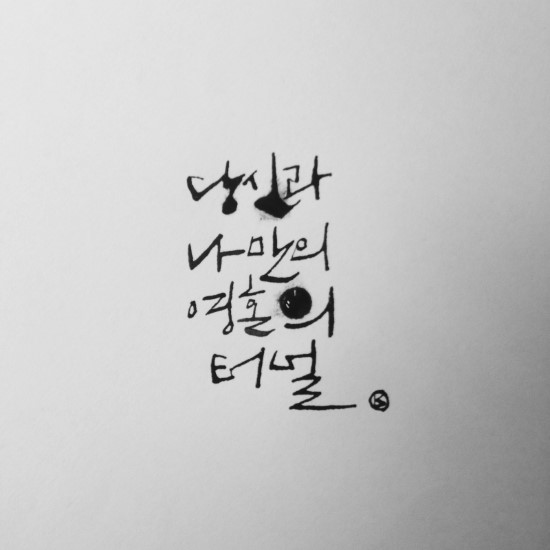 당신과
나만의
영혼의
터널